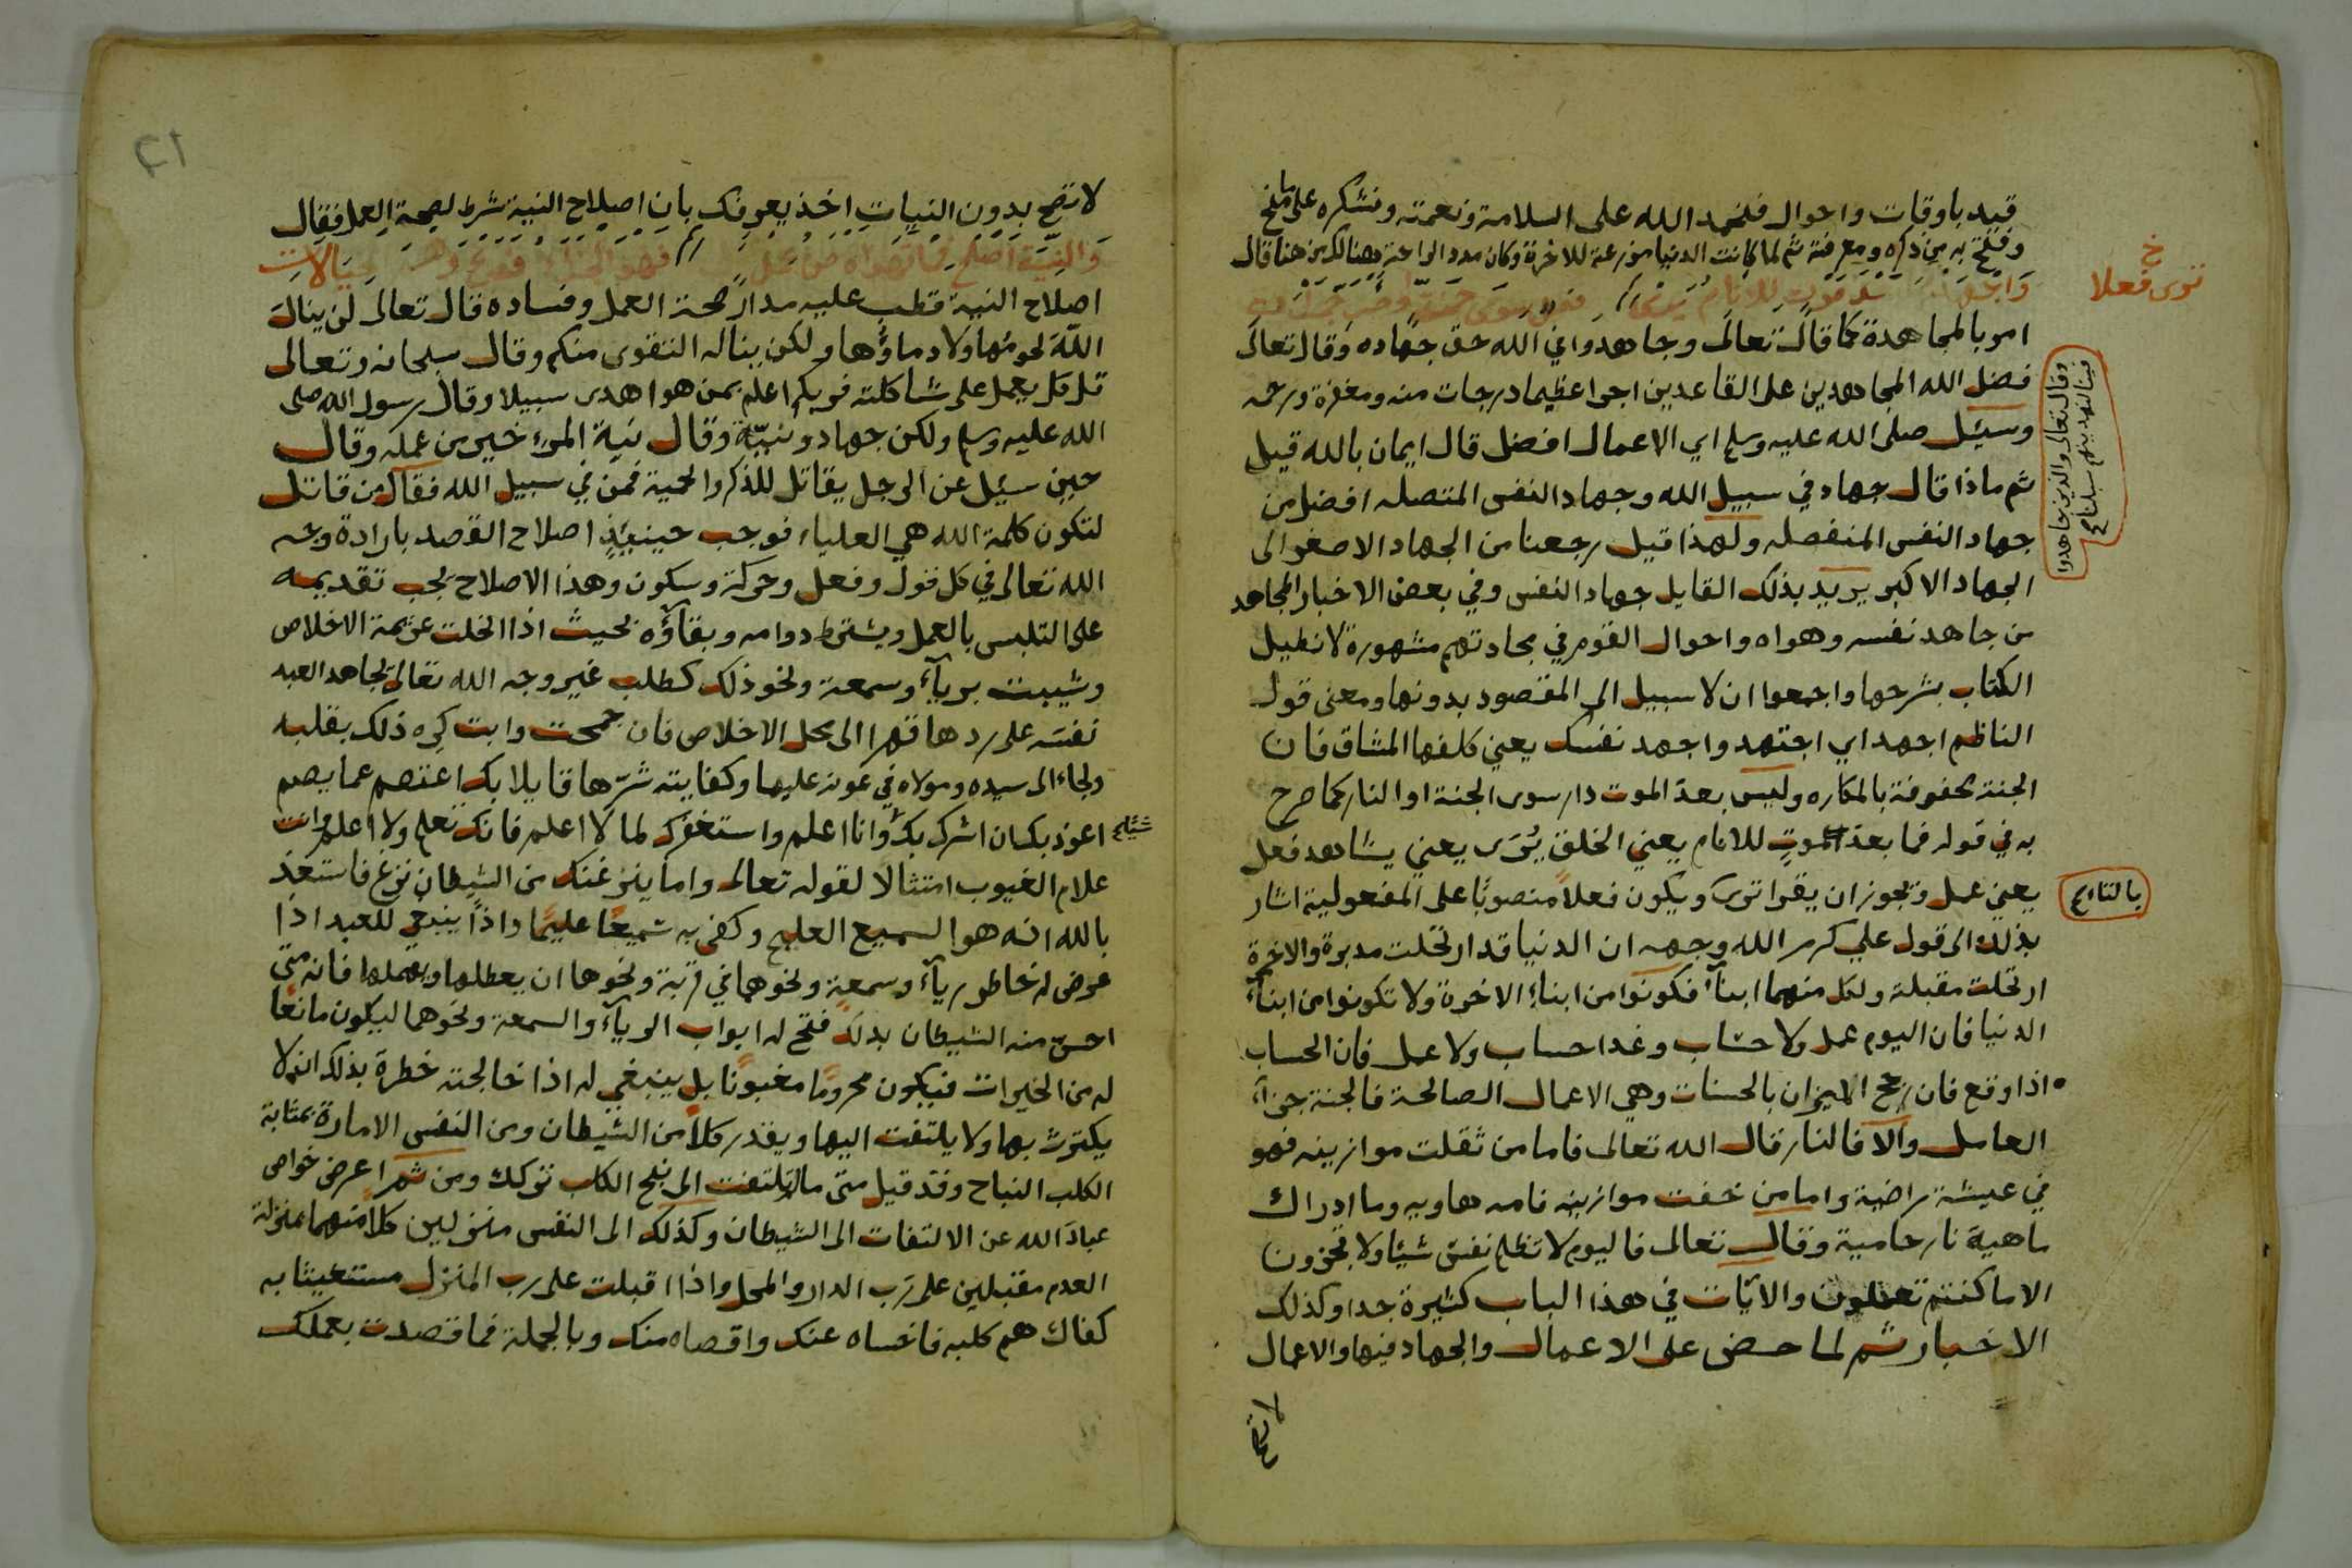 قيد باوقات واحوال فلنحمد الله على السلامة ونعمته ونشكره على ما منح
وفتح به من ذكره ومعرفته ثم لما كانت الدنيا مزرعة للاخرة وكان مدد الراحة هنالك من هنا قال
موت للانام يرى سوى جنة
امر بالمجاهدة كما قال تعالى وجاهدوا في الله حق جهاده وقال تعالى
فضل الله المجاهدين على القاعدين اجرا عظيما درجات منه ومغفرة ورحمه
وسئل صلى الله عليه وسلم اي الاعمال افضل قال ايمان بالله قيل
ثم ماذا قال جهاد في سبيل الله وجهاد النفس المتصله افضل من
جهاد النفس المنفصله ولهذا قيل رجعنا من الجهاد الاصغر الى
الجهاد الاكبر يريد بذلك القايل جهاد النفس وفي بعض الاخبار المجاهد
من جاهد نفسه وهواه واحوال القوم في مجاهدتهم مشهورة لا نطيل
الكتاب بشرحها واجمعوا ان لا سبيل الى المقصود بدونها ومعنى قول
الناظم اجهد اي اجتهد واجهد نفسك يعني كلفها المشاق فان
الجنة محفوفة بالمكاره وليس بعد الموت دار سوى الجنة او النار كما صرح
به في قوله فما بعد الموت للانام يعني الخلق يُرَى يعني يشاهد فعل
يعني عمل ويجوز ان يقرا ترى ويكون فعلاً منصوبًا على المفعولية اشار
بذلك الى قول علي كرم الله وجهه ان الدنيا قد ارتحلت مدبرة والاخرة
ارتحلت مقبلة ولكل منهما ابناء فكونوا من ابناء الاخرة ولا تكونوا من ابناء
الدنيا فان اليوم عمل ولا حساب وغدا حساب ولا عمل فان الحساب
اذا وقع فان رجح الميزان بالحسنات وهي الاعمال الصالحة فالجنة جزاء
العامل والا فالنار قال الله تعالى فاما من ثقلت موازينه فهو
في عيشة راضية واما من خفت موازينه فامه هاويه وما ادراك
ماهية نار حامية وقال تعالى فاليوم لا تظلم نفس شيئا ولا تجزون
الا ما كنتم تعملون والايات في هذا الباب كثيرة جدا وكذلك
الاخبار ثم لما حض على الاعمال والجهاد فيها والاعمال
لا تصح
خ
ترى فعلا
وقال تعالى والذين جاهدوا
فينا لنهدينهم سبلنا صح
بالتا صح
٢١
لا تصح بدون النيات اخذ يعرفك بان اصلاح النية شرط لصحة العمل فقال
والنية اصلح فما تهواه من عمل فهو
اصلاح النية قطب عليه مدار صحة العمل وفساده قال تعالى لن ينال
الله لحومُها ولا دماؤُها ولكن يناله التقوى منكم وقال سبحانه وتعالى
قل كل يعمل على شاكلته فربكم اعلم بمن هو اهدى سبيلا وقال رسول الله صلى
الله عليه وسلم ولكن جهاد ونيّة وقال نية المرء خير من عمله وقال
حين سئل عن الرجل يقاتل للذكر والحمية فمن في سبيل الله فقال من قاتل
لتكون كلمة الله هي العلياء فوجب حينيذ اصلاح القصد بارادة وجه
الله تعالى في كل قول وفعل وحركة وسكون وهذا الاصلاح يجب تقديمه
على التلبس بالعمل ويشترط دوامه وبقاؤه بحيث اذا انحلت عزيمة الاخلاص
وشيبت برياء وسمعة ونحو ذلك كطلب غير وجه الله تعالى يجاهد العبد
نفسَه على ردها قهرا الى محل الاخلاص فان جمحت وابت كره ذلك بقلبه
ولجاء الى سيده ومولاه في عونه عليها وكفايته شرّها قايلا بك اعتصم عما يصم
اعوذ بك ان اشرك بك وانا اعلم واستغفرك لما لا اعلم فانك تعلم ولا اعلم وانت
علام الغيوب امتثالا لقوله تعالى واما ينزغنك من الشيطان نزغ فاستعذ
بالله انه هو السميع العليم وكفى به سميعًا عليمًا واذًا ينبغي للعبد اذا
عرض له خاطر رياء وسمعة ونحوهما في قربة ونحوها ان يعطلها ويهملها فانه متى
احس منه الشيطان بذلك فتح له ابواب الرياء والسمعة ونحوهما ليكون مانعًا
له من الخيرات فيكون محرومًا مغبونًا بل ينبغي له اذا خالجته خطرة بذلك ان لا
يكترث بها ولا يلتفت اليها ويقدر كلاً من الشيطان ومن النفس الامارة بمثابة
الكلب النباح وقد قيل متى ما لم تلتفت الى نبح الكلب تركك ومن ثم اعرض خواص
عباد الله عن الالتفات الى الشيطان وكذلك الى النفس منزلين كلاً منهما بمنزلة
العدم مقبلين على رب الدار والمحل واذا اقبلت على رب المنزل مستغيثا به
كفاك هم كلبه فاخساه عنك واقصاه منك وبالجملة فما قصدت بعملك
شيئا صح